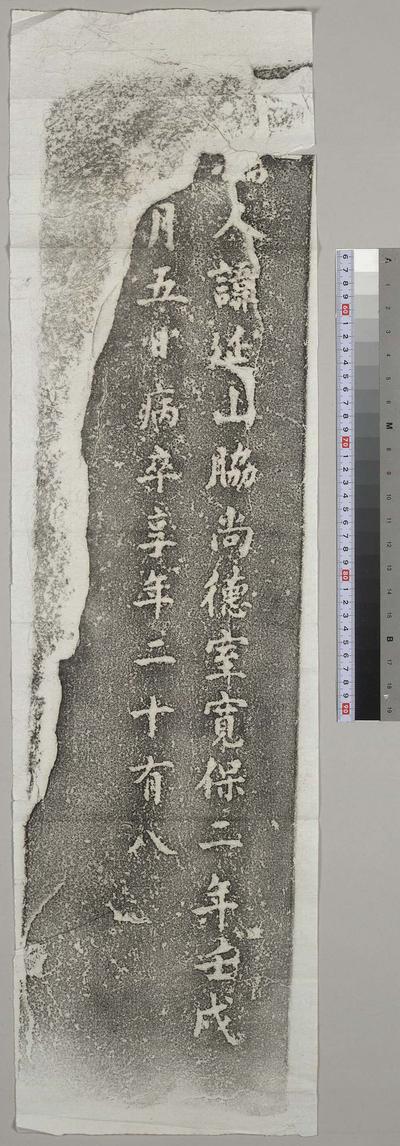 人諱延山脇尚德室寛保二年壬戌
月五日病卒享年二十有八